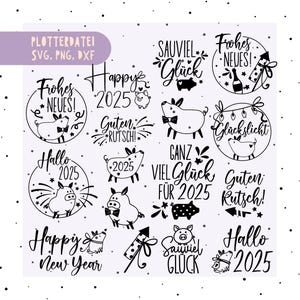 PLOTTERDATEI
SVG, PNG, DXF
Frohes
NEUES!
Happy
2025
SAUVIEL
Glück
Frohes
NEUES!
Guten
RUTSCH!
Glückslicht
Hallo
2025
2025
GANZ
VIEL Glück
FÜR 2025
Guten
Rutsch!
Happy
New Year
Sauviel
GLÜCK
Hallo
2025